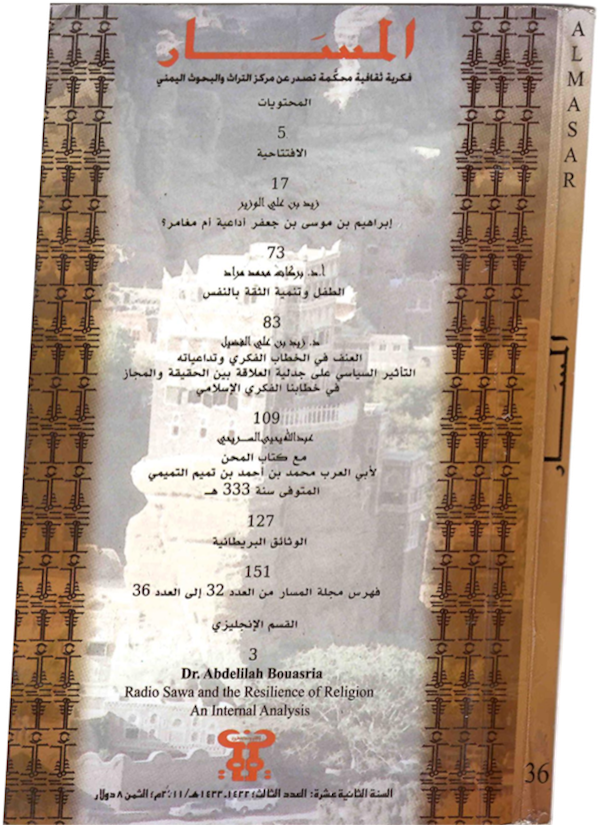 المسار
فكرية ثقافية محكمة تصدر عن مركز التراث والبحوث اليمني
المحتويات
5
الافتتاحية
17
زيد بن علي الوزير
إبراهيم بن موسى بن جعفر أداعية أم مغامر؟
73
أ.د. بركات محمد مراد
الطفل وتنمية الثقة بالنفس
83
د. زيد بن علي الفضيل
العنف في الخطاب الفكري وتداعياته
التأثير السياسي على جدلية العلاقة بين الحقيقة والمجاز
في خطابنا الفكري الإسلامي
109
عبدالله يحيى السريحي
مع كتاب المحن
لأبي العرب محمد بن أحمد بن تميم التميمي
المتوفى سنة 333 هـ
127
الوثائق البريطانية
151
فهرس مجلة المسار من العدد 32 إلى العدد 36
القسم الإنجليزي
3
Dr. Abdelilah Bouasria
Radio Sawa and the Resilience of Religion
An Internal Analysis
السنة الثانية عشرة: العدد الثالث؛ ١٤٣٢-١٤٣٣هـ/٢٠١١م؛ الثمن ٨ دولار
ALMASAR
المسار
36